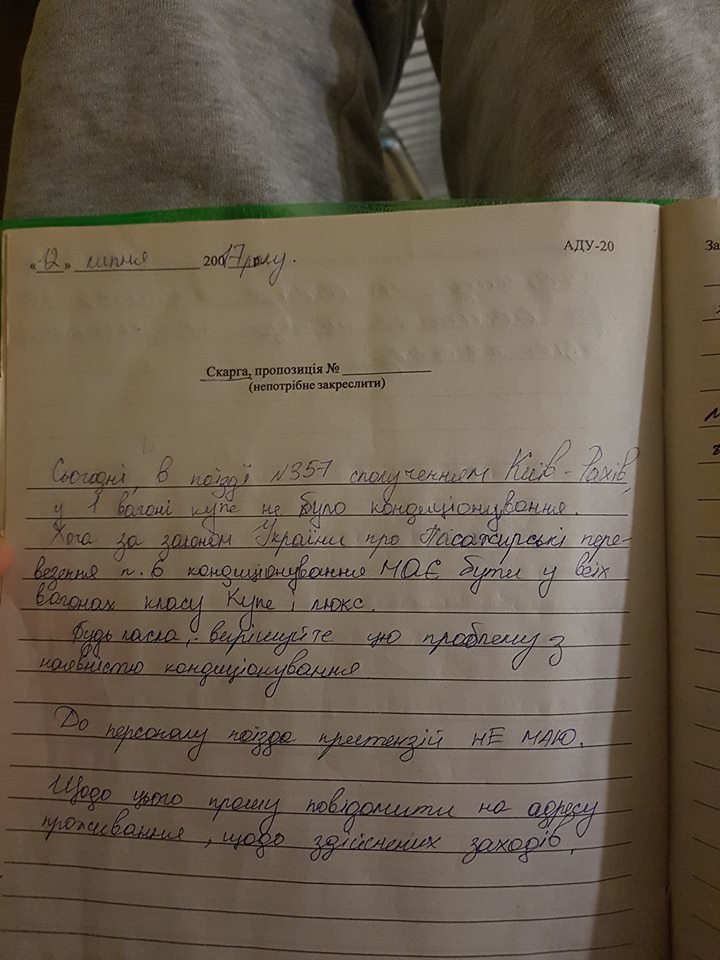 АДУ-20
« 12 » липня 20017 року.
Скарга, пропозиція №
(непотрібне закреслити)
Сьогодні, в поїзді №357 сполученням Київ - Рахів,
у 1 вагоні купе не було кондиціонування.
Хоча за законом України про Пасажирські пере-
везення п. 6 кондиціонування МАЄ бути у всіх
вагонах класу Купе і люкс.
Будь ласка, вирішуйте цю проблему з
наявністю кондиціонування
До персоналу поїзда претензій НЕ МАЮ.
Щодо цього прошу повідомити на адресу
проживання, щодо здійснених заходів.
За